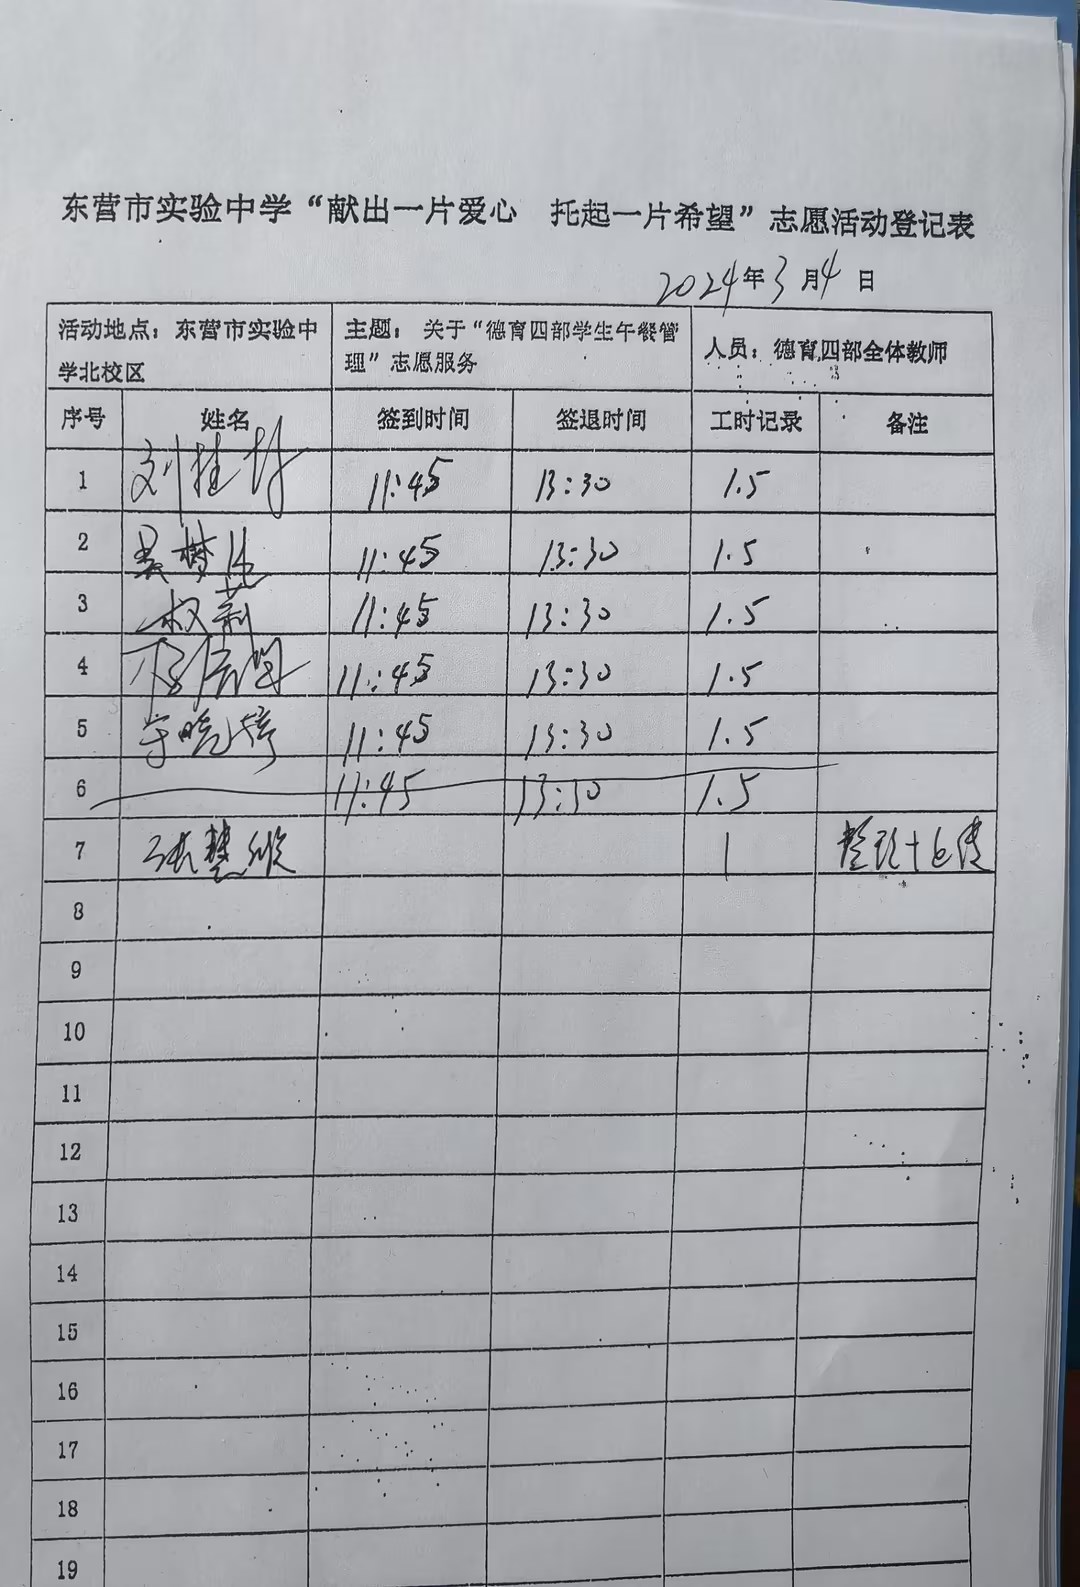 东营市实验中学“献出一片爱心 托起一片希望”志愿活动登记表
2024年3月4日
活动地点：东营市实验中学北校区 主题：关于“德育四部学生午餐管理”志愿服务 人员：德育四部全体教师
序号 姓名 签到时间 签退时间 工时记录 备注
1 11:45 13:30 1.5
2 11:45 13:30 1.5
3 权莉 11:45 13:30 1.5
4 11:45 13:30 1.5
5 11:45 13:30 1.5
6 11:45 13:30 1.5
7 张慧 1
8
9
10
11
12
13
14
15
16
17
18
19